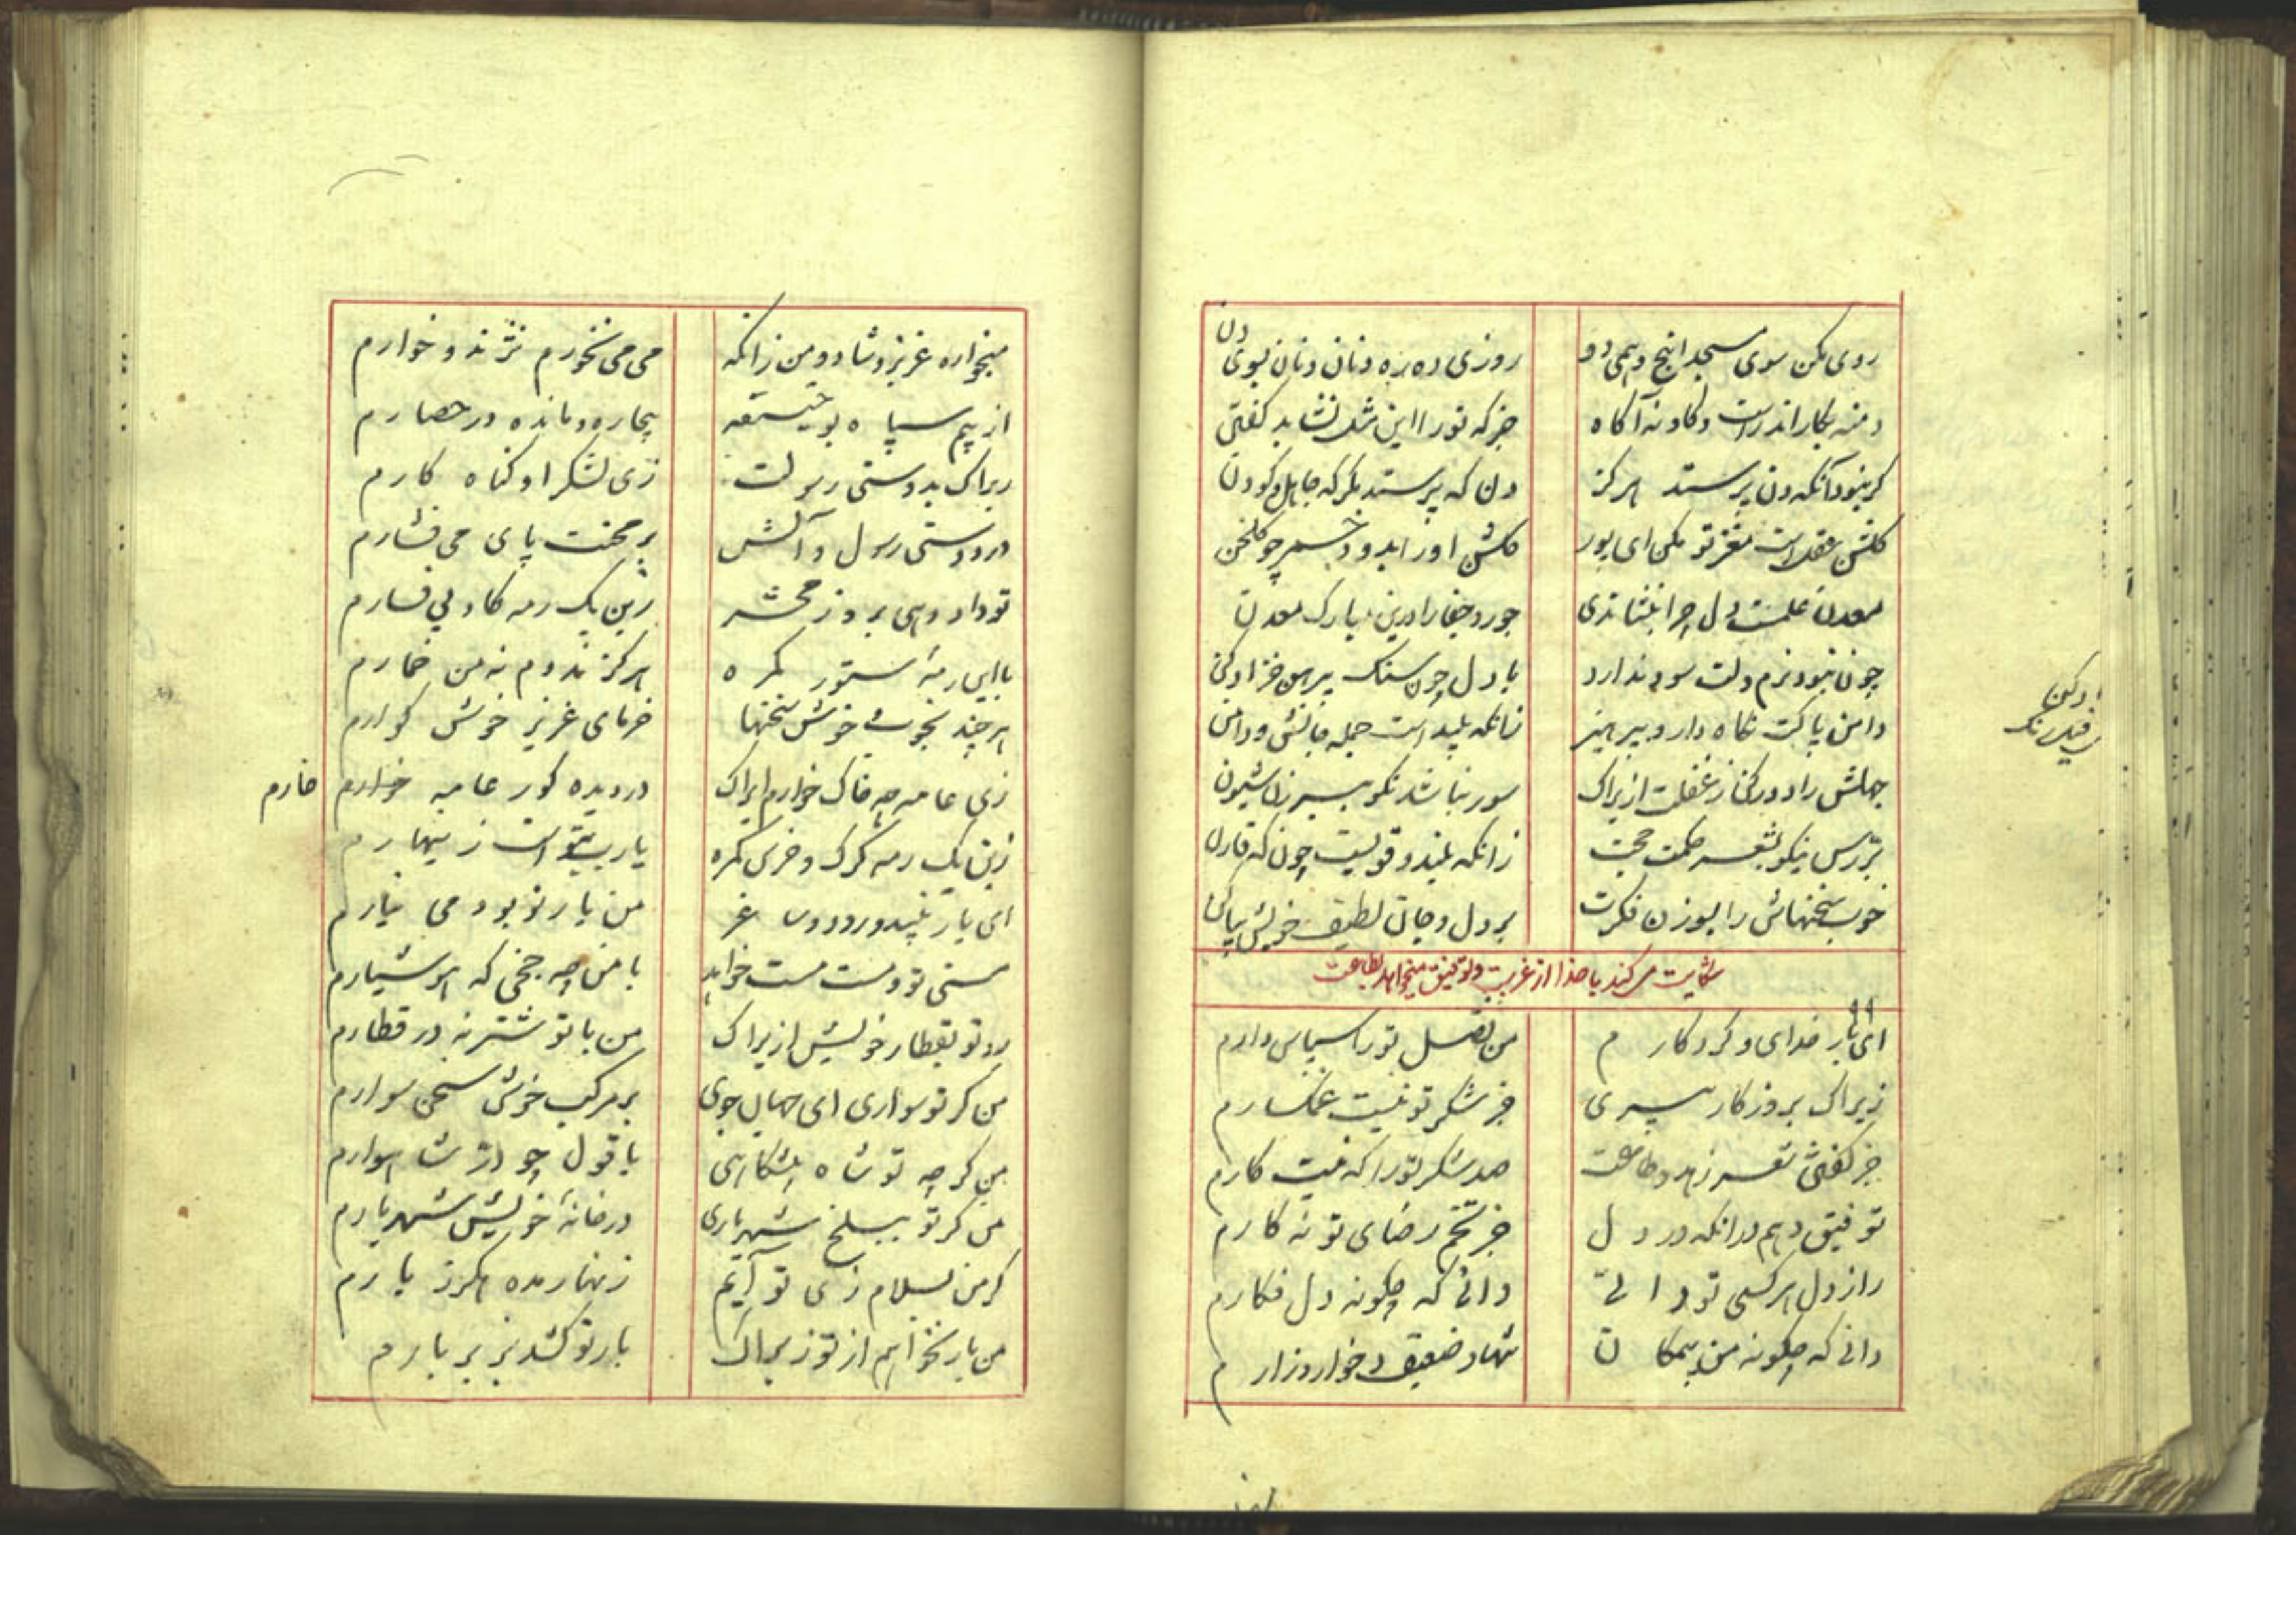 روی مکن سوی مسجد اینچ وهمی دو
روزی ده ره دنان دنان بسوی دن
دمنه بکار اندر است وکاو نه آکاه
جز که تو را این مثل نشاید کفتن
کر نبود آنکه دن پرستد هرکز
دن که پرستد مکر که جاهل و کودن
کلشن عقل است مغز تو مکن ای پور
کلشن او را بدود خمر چو کلخن
معدن علمست دل چرا بنشاندی
جور و جفا را درین مبارک معدن
چون نبود نرم دلت سود ندارد
با دل چون سنک پیرهن خز ادکن
دامن پاکت نکاه دار و بپرهیز
زانکه پلید است جمله جانش و دامن
جهلش را دور کن ز غفلت ازیراک
سور نباشد نکو بسر زن شیون
بررس نیکو بشعر حکمت حجت
زانکه بلند و قویست چون که قارن
خوب سخنهاش را بسوزن فکرت
بر دل و جان لطیف خویش بیاکن
شکایت می کند با خدا از غربت و توفیق میخواهد بطاعت
ای بار خدای و کردکارم
من فضل تو را سپاس دارم
زیراک بروزکار پیری
جز شکر تو نیست غمکسارم
جز کفتن شعر زهد و طاعت
صد شکر تو را که نیست کارم
توفیق دهم بدانکه در دل
جز تخم رضای تو نه کارم
راز دل هرکسی تو دانی
دانی که چکونه دل فکارم
دانی که چکونه من بیمکان
تنها و ضعیف و خوار و زارم
ادکن
سیه رنک
میخواره عزیز و شاد و من زانکه
می می نخورم نژند و خوارم
از بیم سپاه بوحنیفه
بیچاره و مانده در حصارم
زیراک بدوستی رسولت
زی لشکر او کناه کارم
در دوستی رسول و آلش
بر محنت پای می فشارم
تو داد دهی بروز محشر
زین یک رمه کاو بی فسارم
با این رمه ستور کمره
هرکز نه دوم نه من خمارم
هر چند بخوب و خوش سخنها
خرمای عزیز خوش کوارم
زی عامه چه خاک خوارم ایراک
در دیده کور عامه خوارم
خارم
زین یک رمه کرک و خرس کمره
یارب بتو است زینهارم
ای یار پلید و روسی غر
من یار تو بود می نیارم
مستی تو و مست مست خواهد
با من چه چخی که هوشیارم
رو تو بقطار خویش ازیراک
من با تو شتر نه در قطارم
من کر تو سواری ای جهان جوی
بر مرکب خوش سخن سوارم
من کر چه تو شاه پیشکاهی
با قول چو در شاهوارم
من کر تو ببلخ شهریاری
در خانه خویش شهریارم
کر من بسلام زی تو آیم
زنهار مده هرکز بارم
من بار نخواهم از تو زیراک
بار تو کشد بزیر بارم